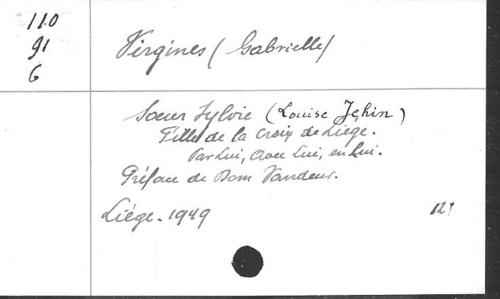 110
91
G
Virgines (Gabrielle)
Sœur Sylvie (Louise Jehin)
Fille de la Croix de Liège.
Par Lui, avec Lui, en Lui.
Préface de Dom Vandeur.
Liège. 1949
121